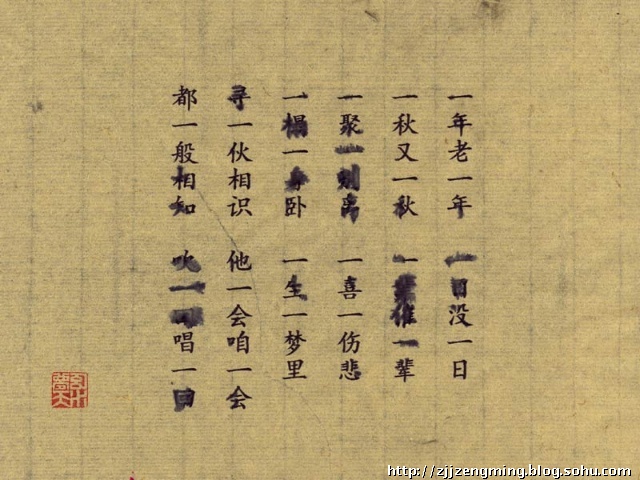 一年老一年 一日没一日
一秋又一秋 一辈催一辈
一聚一别离 一喜一伤悲
一榻一身卧 一生一梦里
寻一伙相识 他一会咱一会
都一般相知 吹一回唱一回
http://zjjzengming.blog.sohu.com